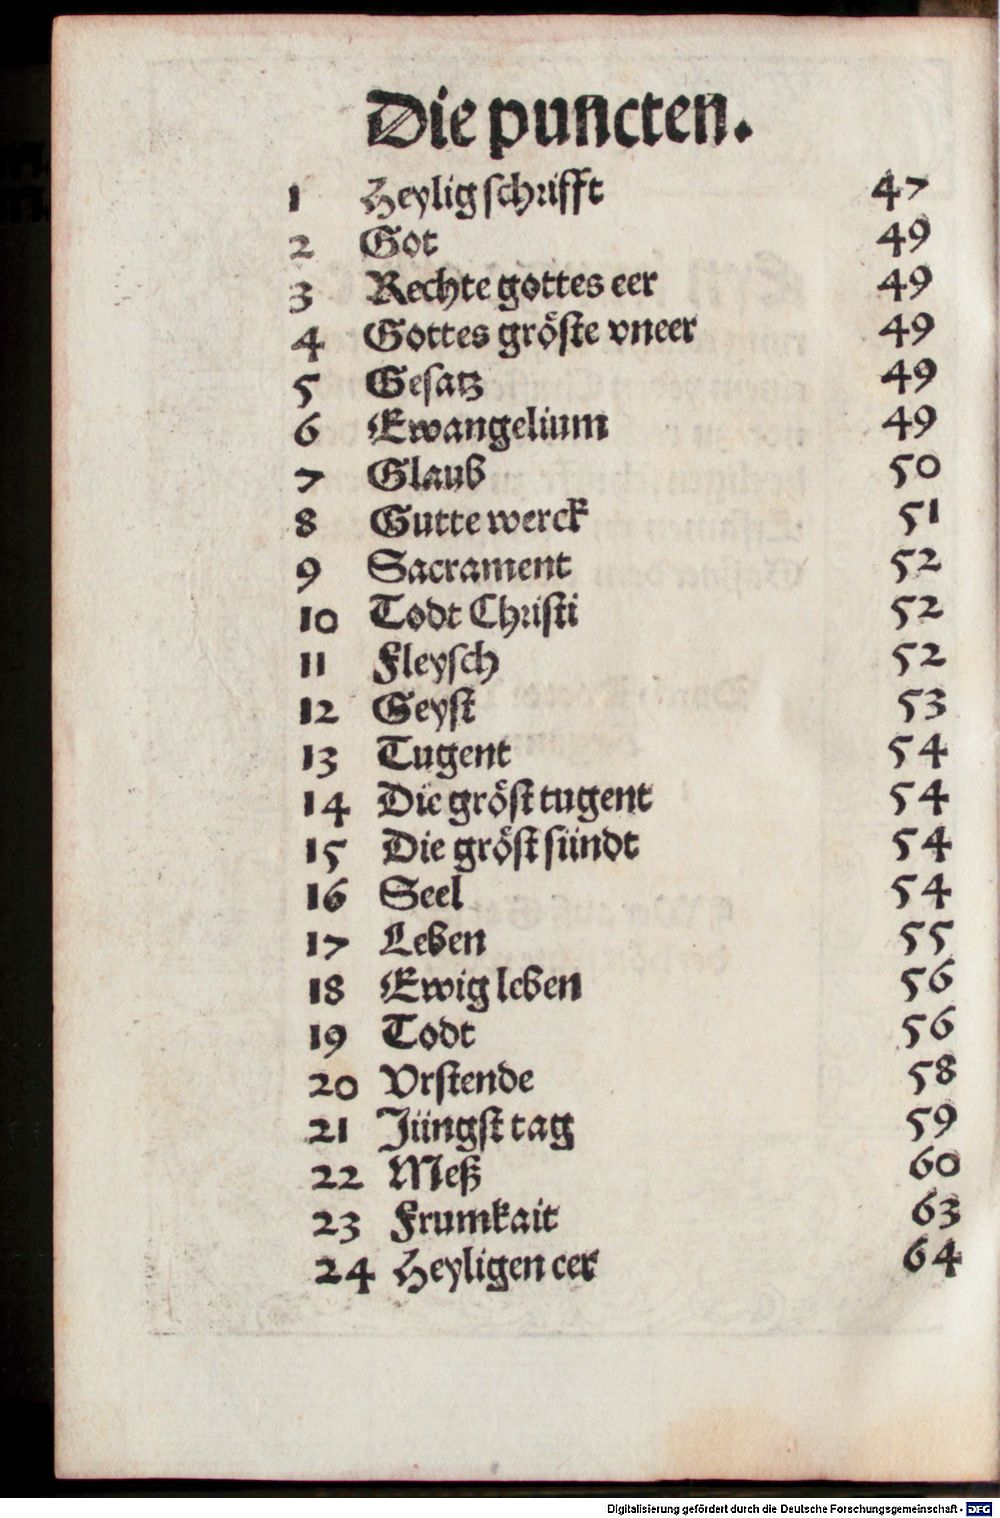 Die puncten.
1 Heylig schrifft 47
2 Got 49
3 Rechte gottes eer 49
4 Gottes gröste vneer 49
5 Gesatz 49
6 Ewangelium 49
7 Glaub 50
8 Gutte werck 51
9 Sacrament 52
10 Todt Christi 52
11 Fleysch 52
12 Geyst 53
13 Tugent 54
14 Die gröst tugent 54
15 Die gröst sündt 54
16 Seel 54
17 Leben 55
18 Ewig leben 56
19 Todt 56
20 Vrstende 58
21 Jüngst tag 59
22 Meß 60
23 Frumkait 63
24 Heyligen eer 64
Digitalisierung gefördert durch die Deutsche Forschungsgemeinschaft - DFG